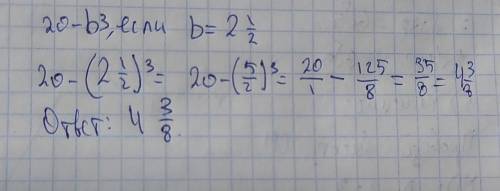 20-b³, если b=2 1/2
20-(2 1/2)³= 20-(5/2)³= 20/1 - 125/8 = 35/8 = 4 3/8
Ответ: 4 3/8.